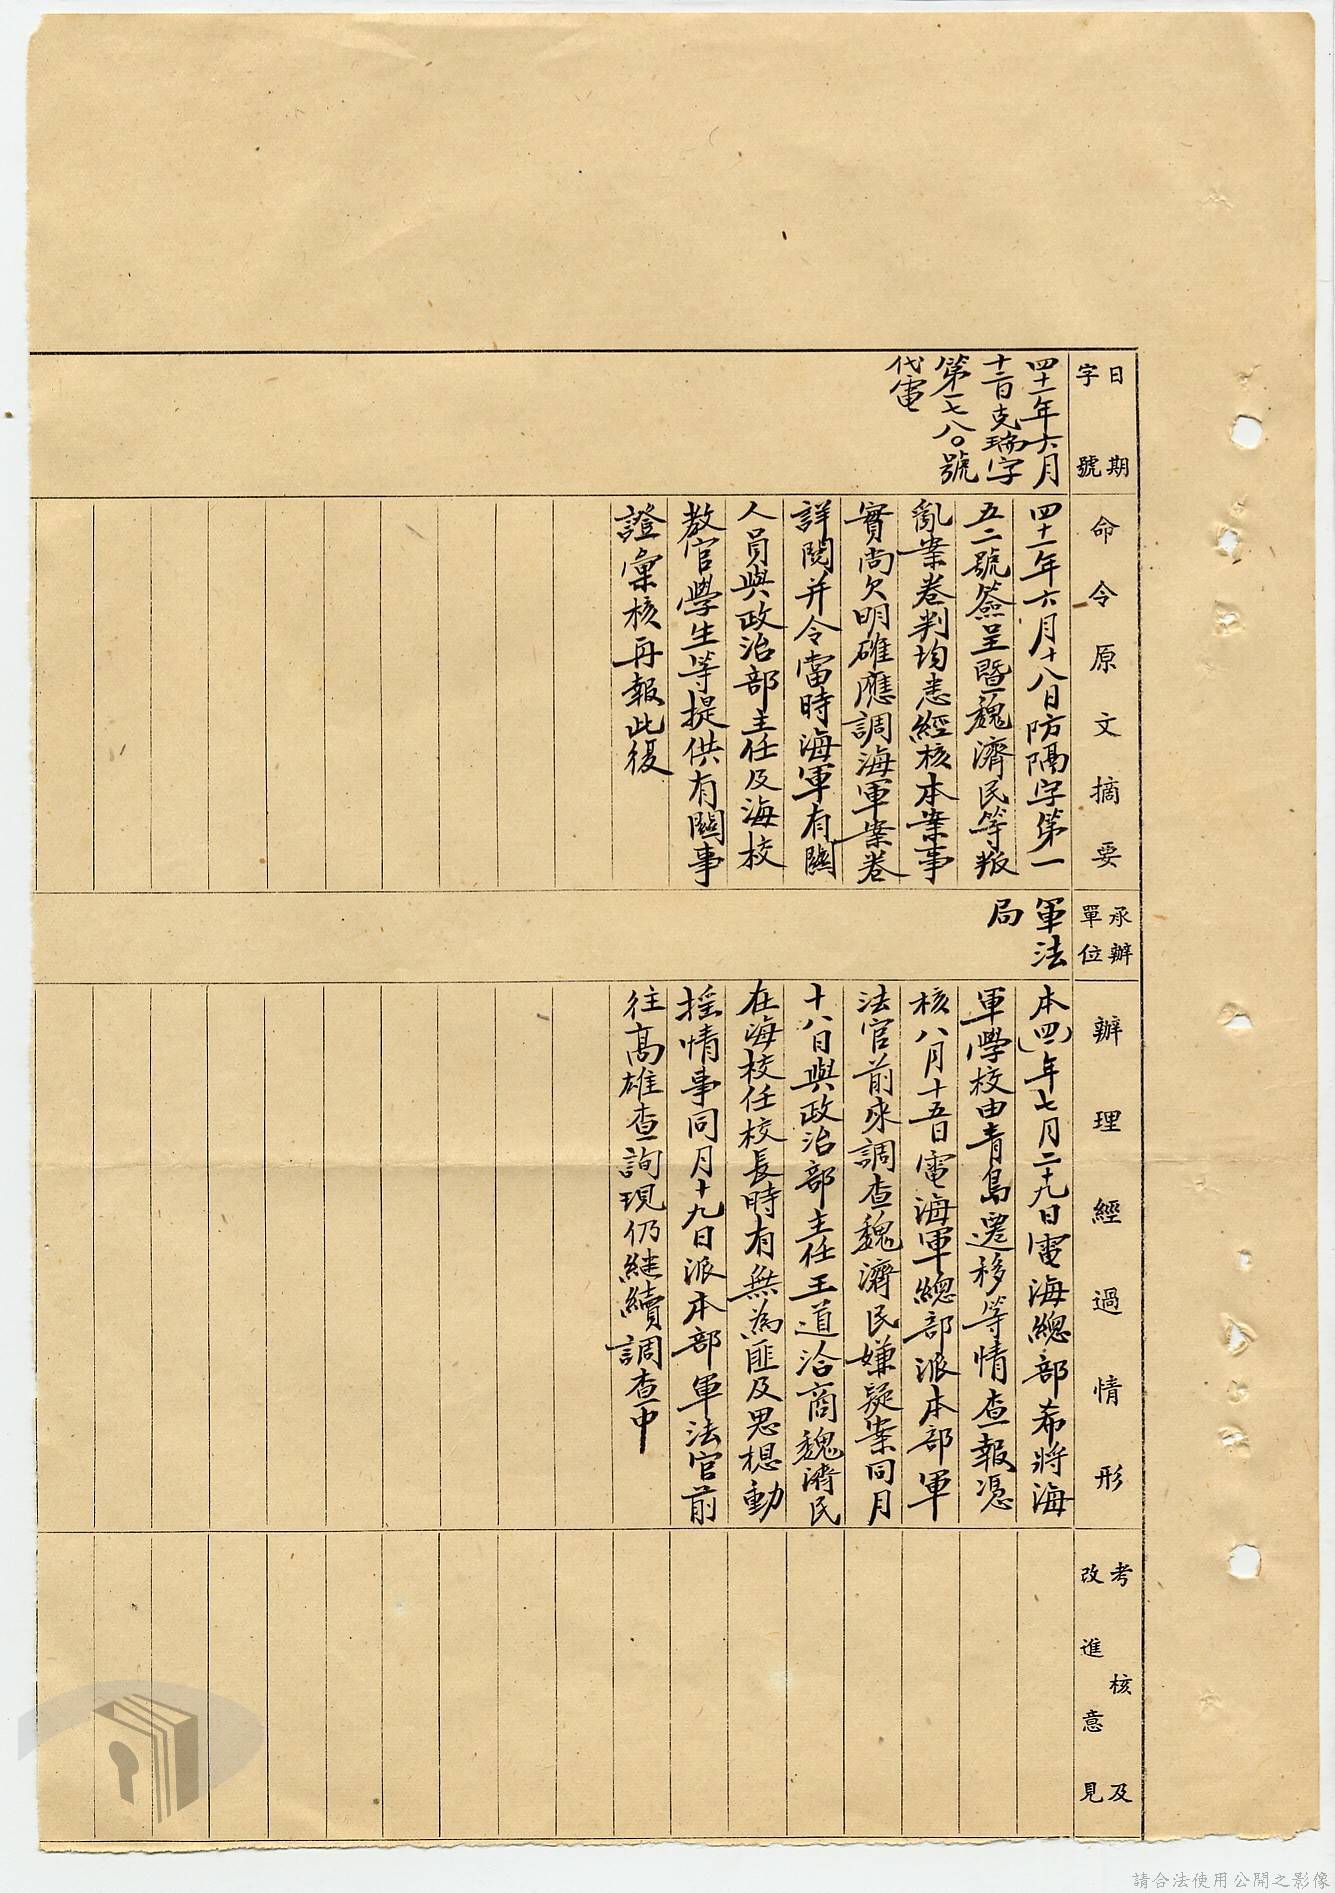 日期
字號
四十一年六月
十二日克瑞字
第一七八〇號
代電
命令原文摘要
四十一年六月十八日防隔字第一
五二號簽呈暨魏濟民等叛
亂案卷判均悉經核本案事
實尚欠明確應調海軍案卷
詳閱并令當時海軍有關
人員與政治部主任及海校
教官學生等提供有關事
證彙核再報此復
承辦
單位
軍法
局
辦理經過情形
本(四一)年七月二十九日電海總部希將海
軍學校由青島遷移等情查報憑
核八月十五日電海軍總部派本部軍
法官前來調查魏濟民嫌疑案同月
十八日與政治部主任王道洽商魏濟民
在海校任校長時有無為匪及思想動
搖情事同月十九日派本部軍法官前
往高雄查詢現仍繼續調查中
考核及
改進意見
請合法使用公開之影像